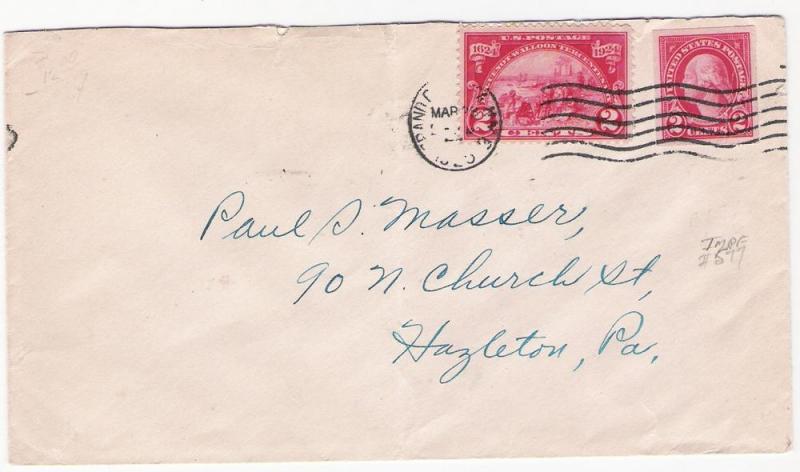 U.S. POSTAGE
1624 1924
HUGUENOT WALLOON TERCENTENARY
2 CENTS 2
UNITED STATES POSTAGE
2 CENTS 2
GRAND
MAR
Paul S. Masser,
90 N. Church St,
Hazleton, Pa.
IMPF
#577